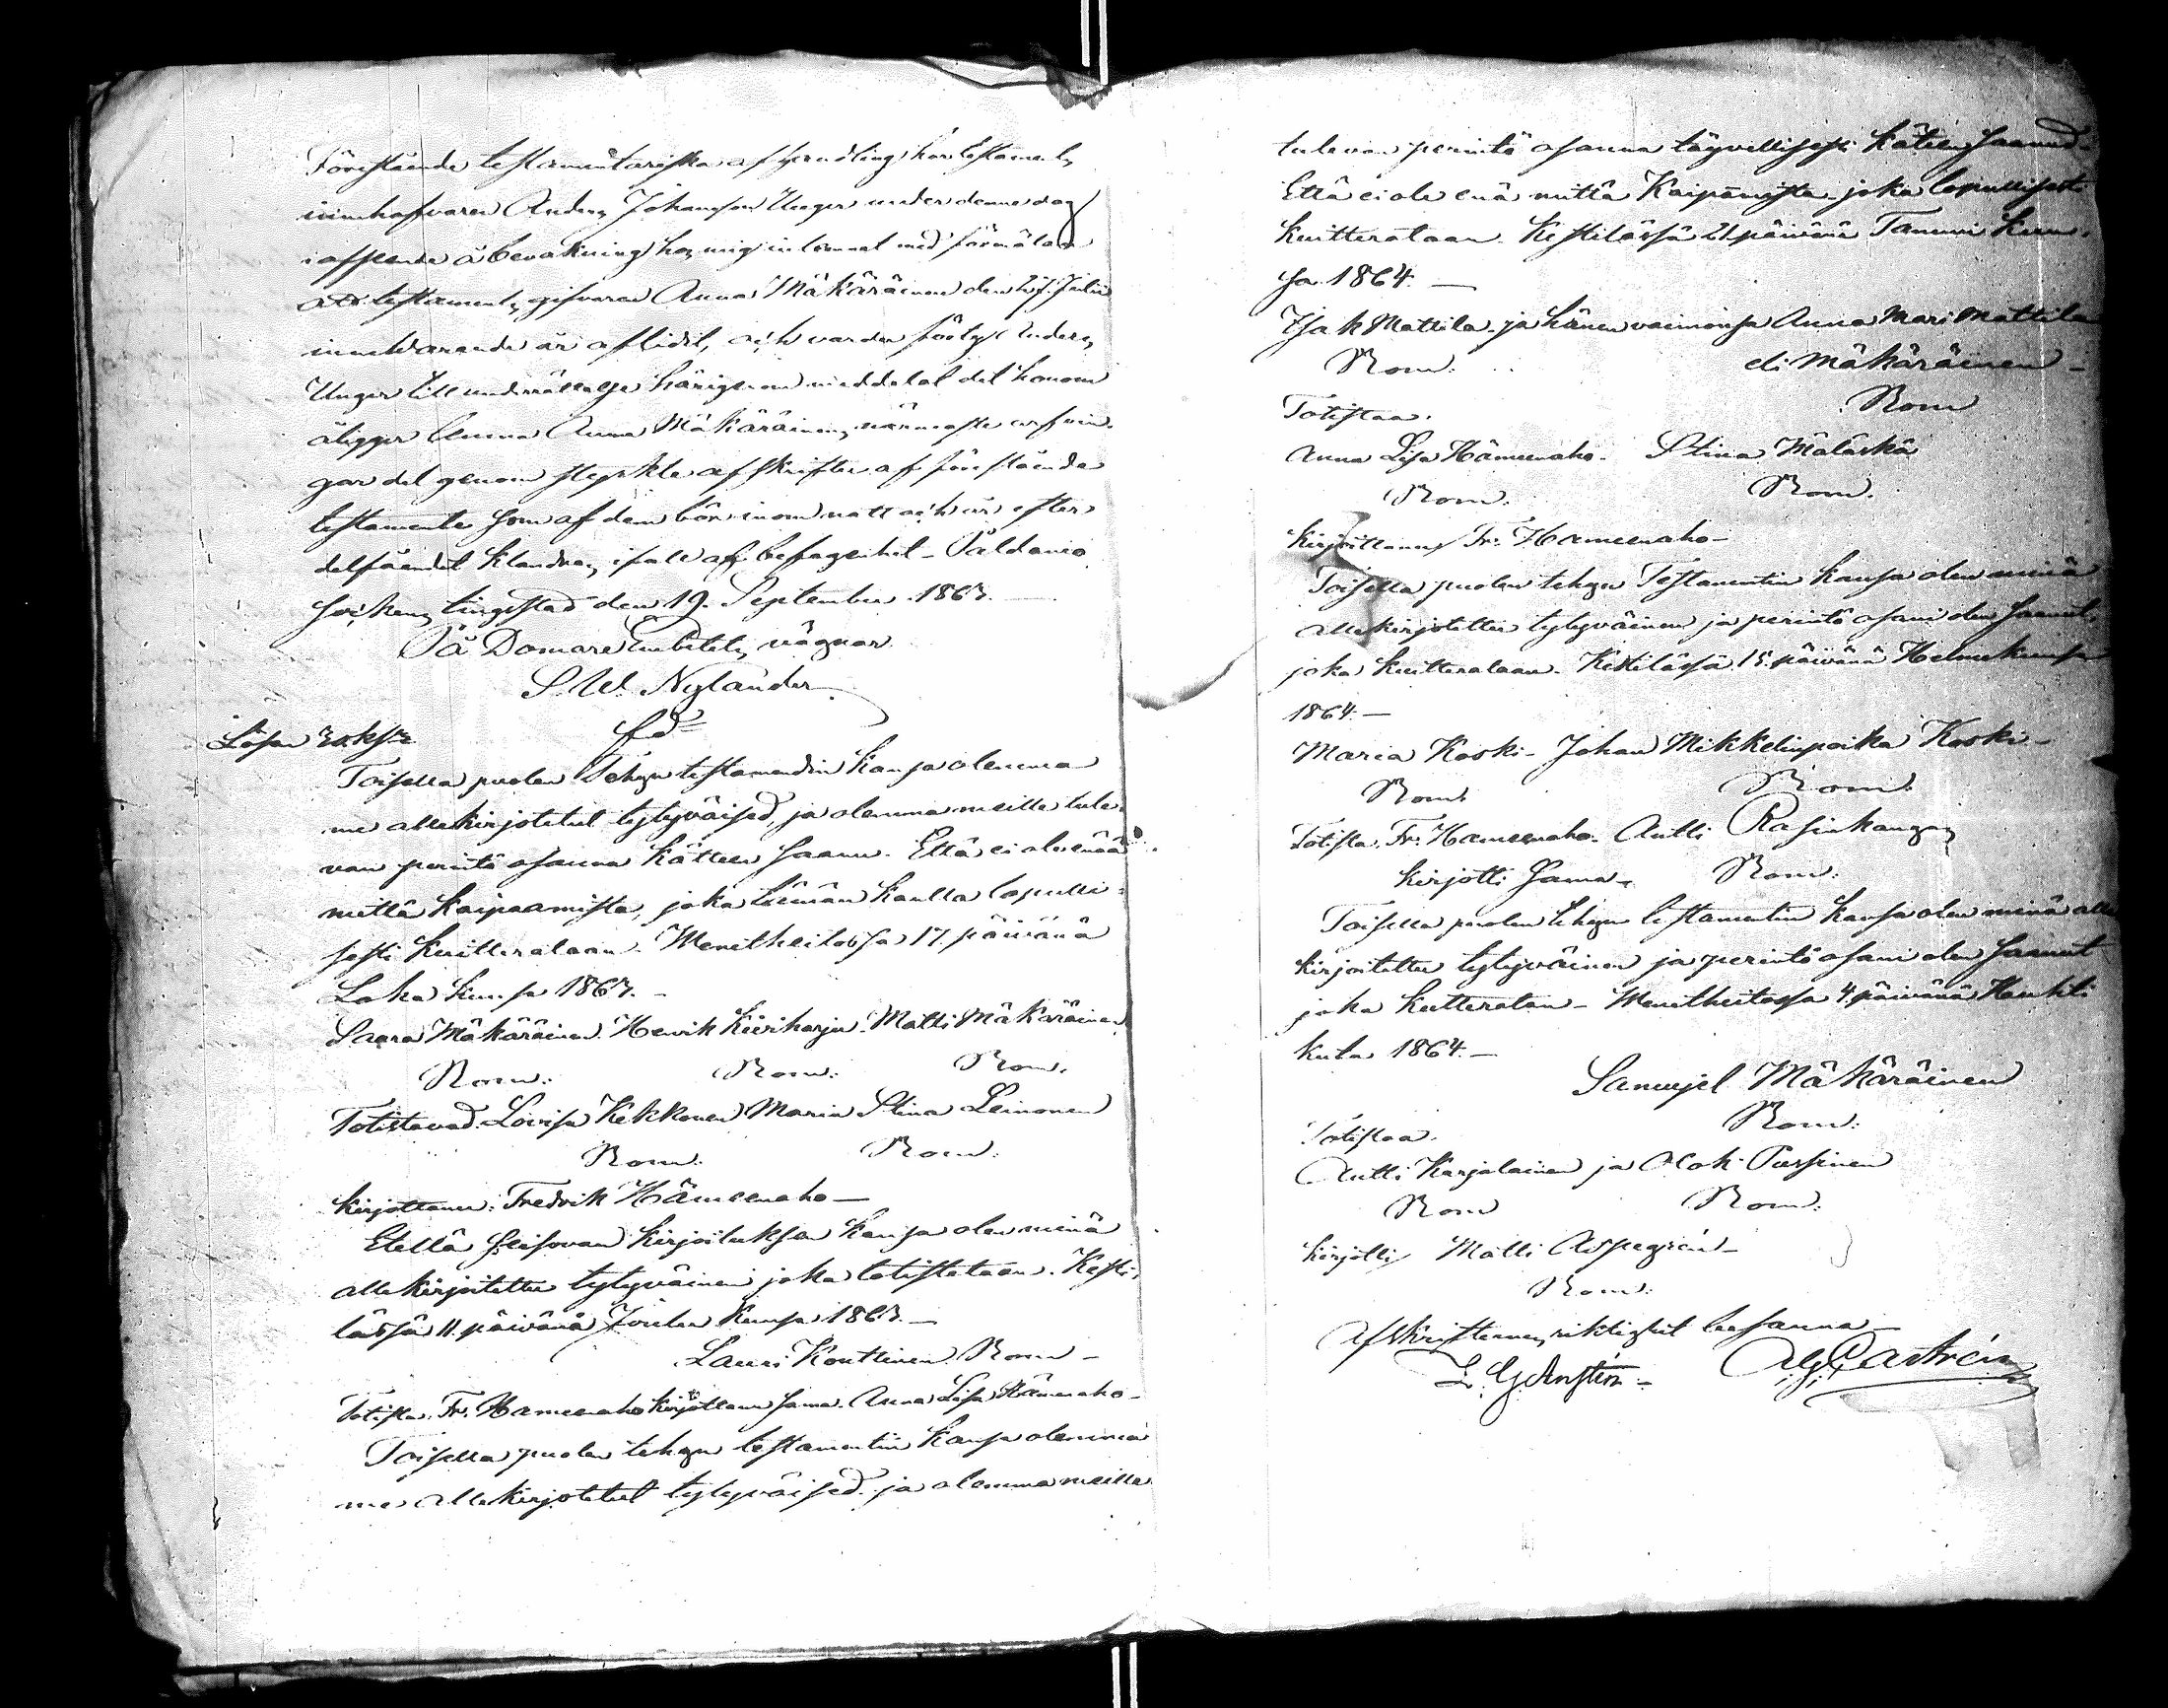 Förestående testamentariska afhandling har testaments
innehafvaren Anders Johansson Unger under denna dag
i afseende å bevakning hos mig inlemnat med förmälan
att testaments gifvaren Anna Mäkäräinen den 27 Julii
innevarande år aflidit, och varder förty Anders
Unger till underrättelse härigenom meddelat det honom
åligger lemna Anna Mäkäräinens närmaste arfvin-
gar del genom styrkte afskrifter af förestående
testamente som af dem bör inom natt och år efter
delfåendet klandras i fall af befogenhet. Paldamo
Sockens tingstad den 19. September 1863.
På Domare Embetets vägnar
S. W. Nylander
Lösen
Toisella puolen Tehgyn testamendin kansa olemma
me allekirjotetut tytyväised, ja olemma meille tule-
van perintö osanna kätteen saanu. Että ei ole enää
mittä kaipaamista, joka tämän kautta lopulli-
sesti kuitteralaan. Meneltheitossa 17. päivänä
Loka kuussa 1863.
Saara Mäkäräinen. Henrik Kiiriharju. Matti Mäkäräinen
Bom. Bom. Bom.
Totistavad. Lovisa Kekkonen Maria Stina Leinonen
Bom. Bom.
kirjottanu: Fredrik Hämeenaho
Etellä Seisovan kirjoituksen kansa olen minä
allekirjoitettu tytyväinen joka totistetaan. Kesti-
lässä 11. päivänä Joulu kuussa 1863.
Lauri Konttinen Bom
Totista. Fr. Hameenaho kirjottanu sama. Anna Lisa Hämeenaho
Toisella puolen tehgyn testamentin kansa olemma
me allekirjotetut tytyväised ja olemma meille
tulevan perintö osanna täyvellisesti käteen saanud.
Että ei ole enä mittä Kaipamista joka lopullisesti
kuitterataan. Kestilässä 21 päivänä Tammi kuu-
sa 1864.
Isak Mattila ja hänen vaimonsa Anna Mari Mattila
Bom. eli Mäkäräinen
Totistaa. Bom
Anna Lisa Hämeenaho. Stina Mäläskä
Bom. Bom.
Kirjoittanu Fr. Hameenaho
Toisella puolen tehgyn Testamentin kansa olen minä
allekirjotettu tytyväinen ja perintö osani olen saanut,
joka kuitterataan. Kestilässä 15. päivänä Helmikuussa
1864.
Maria Koski. Johan Mikkelinpoika Koski
Bom. Bom.
Totista. Fr. Hameenaho. Antti Rasinkangas
kirjotti Sama. Bom.
Toisella puolen tehgyn testamentin kansa olen minä alle
kirjoitettu tytyväinen ja perintö osani olen saanut
joka kuitteratan. Meneltheitossa 4. päivänä Huhti
kuta 1864.
Samujel Mäkäräinen
Totistaa. Bom.
Antti Karjalainen ja Pussinen
Bom Bom.
kirjotti Matti Aspegrén
Bom.
Afskriftennes riktighet besanna
Castrén